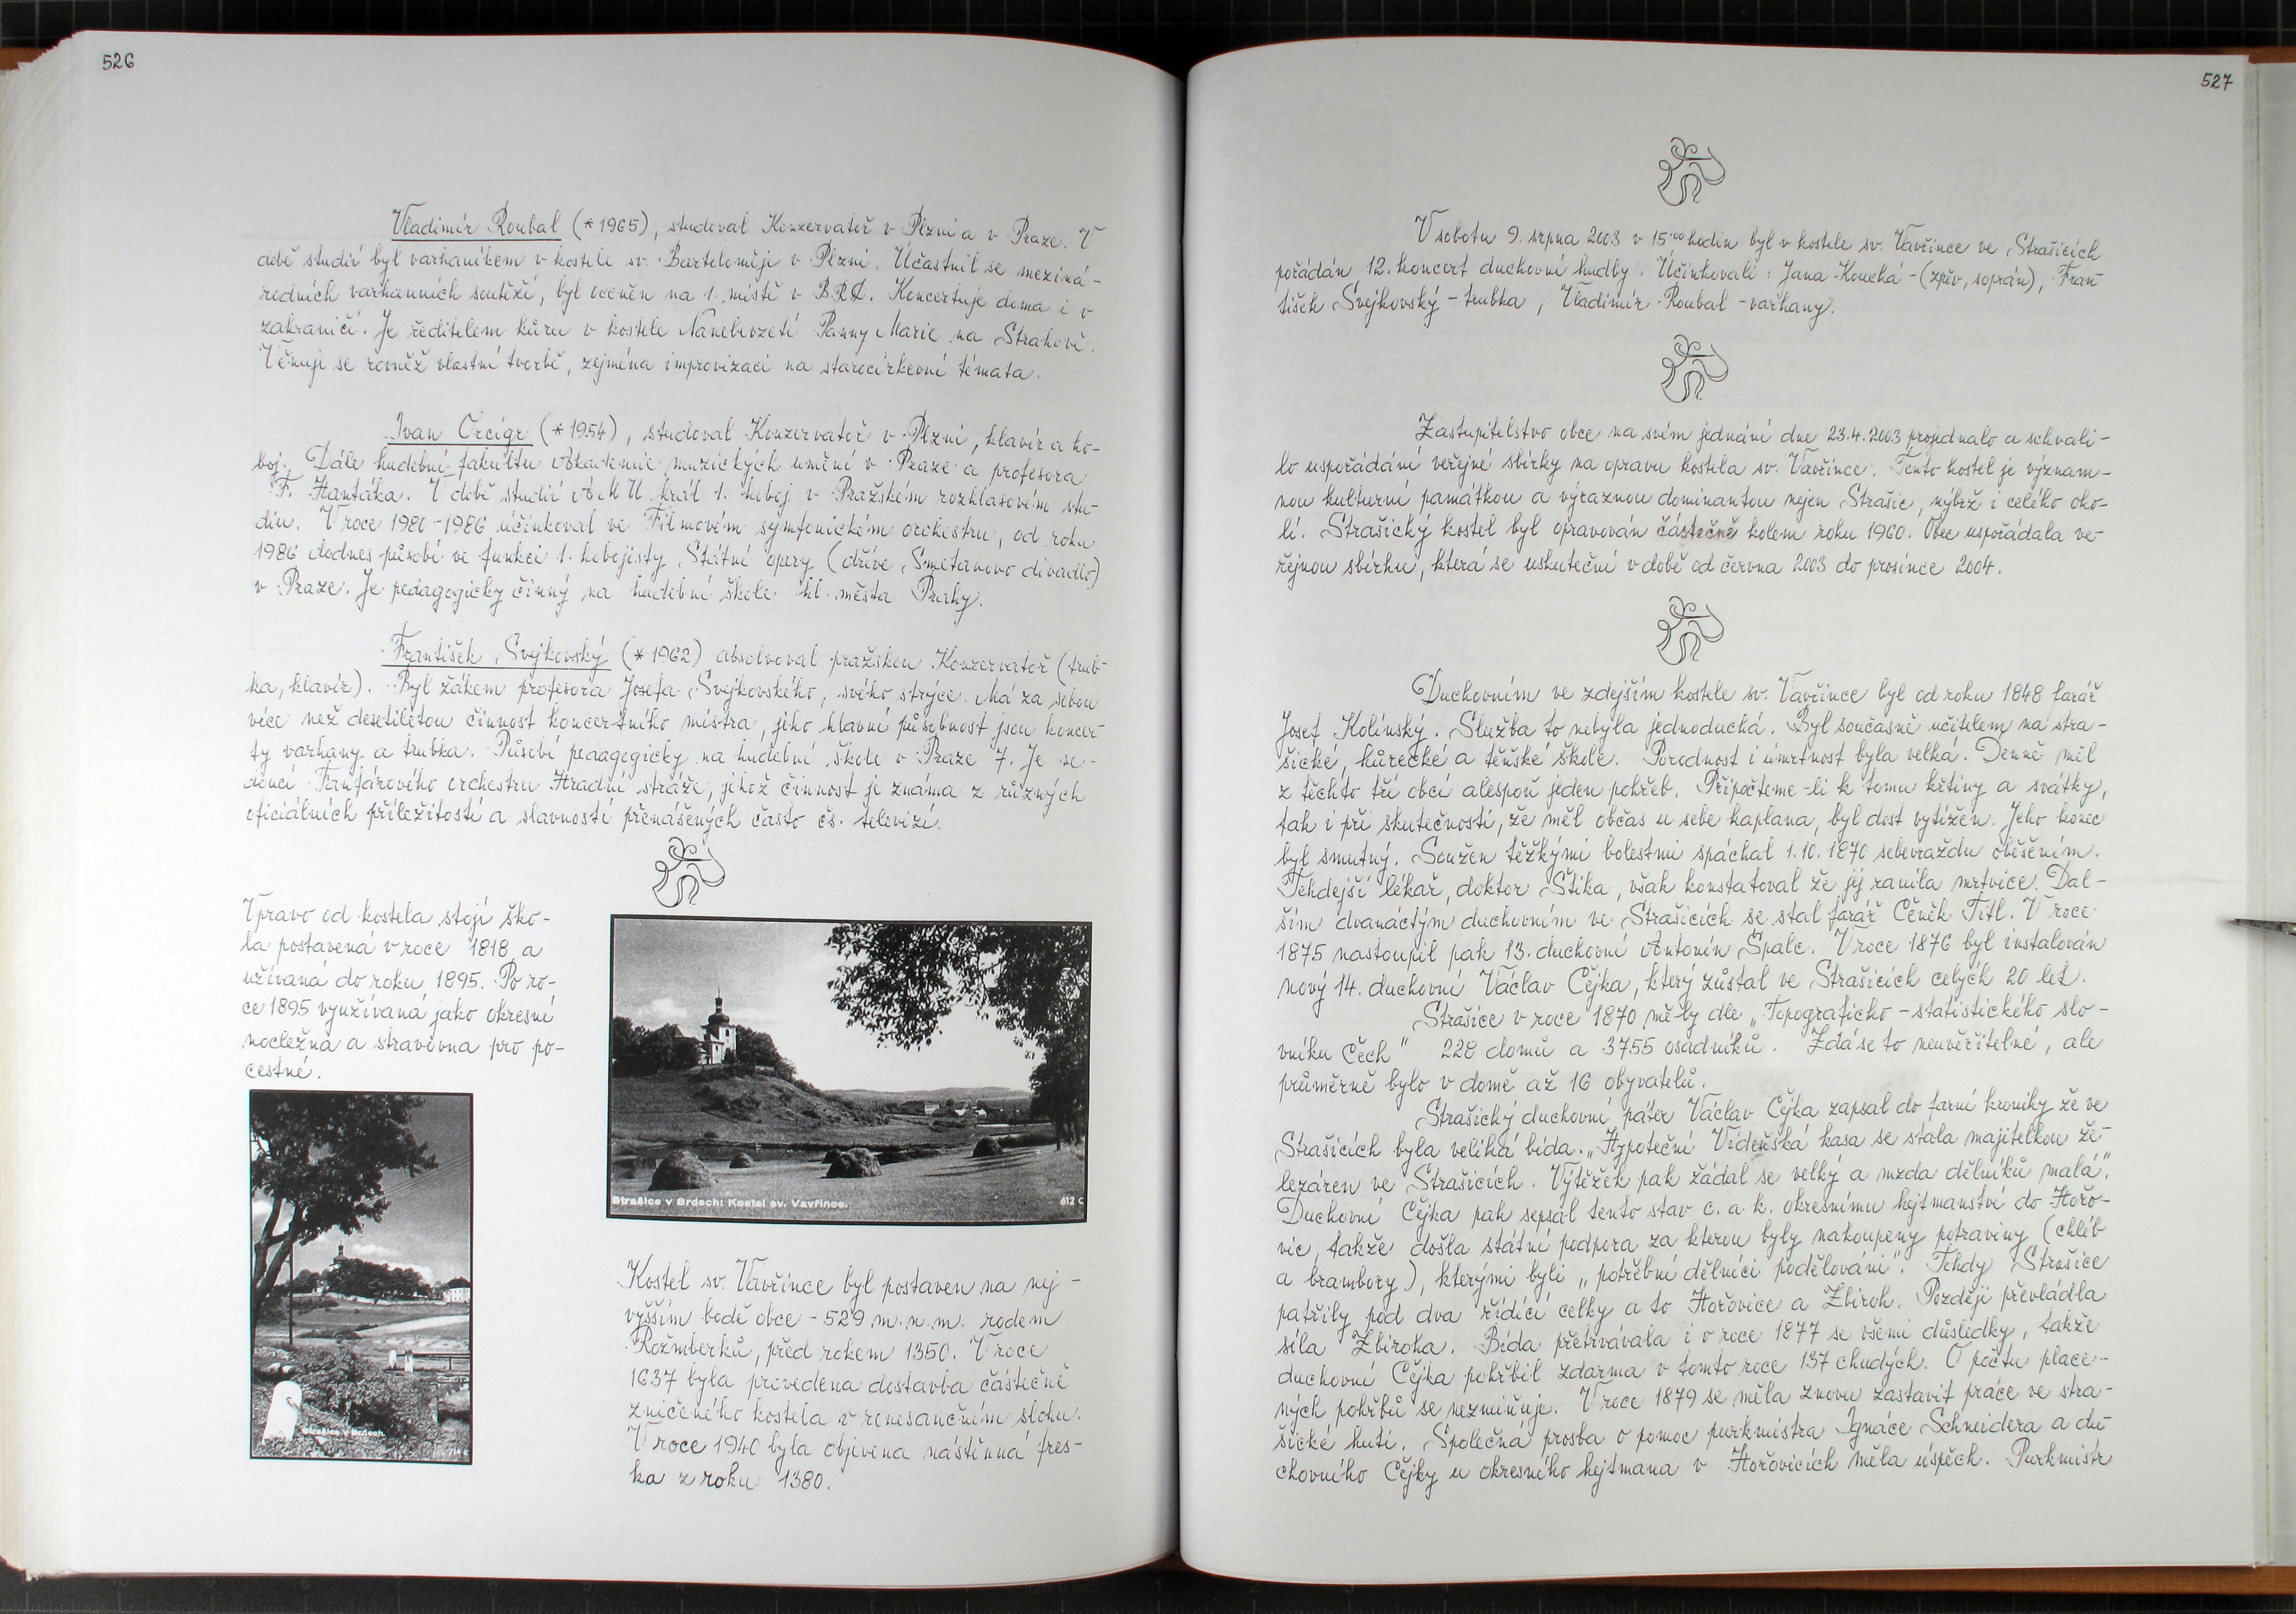 526
Vladimír Roubal (*1965), studoval Konzervatoř v Plzni a v Praze. V
době studií byl varhaníkem v kostele sv. Bartoloměje v Plzni. Účastnil se meziná-
rodních varhanních soutěží, byl oceněn na 1. místě v B.R.D. Koncertuje doma i v
zahraničí. Je ředitelem kůru v kostele Nanebevzetí Panny Marie na Strahově.
Věnuje se rovněž vlastní tvorbě, zejména improvizaci na starocírkevní témata.
Ivan (*1954), studoval Konzervatoř v Plzni, klavír a ho-
boj. Dále hudební fakultu Akademie muzických umění v Praze a profesora
F. Hantáka. V době studií AMU hrál 1. hoboj v Pražském rozhlasovém stu-
diu. V roce 1980-1986 účinkoval ve Filmovém symfonickém orchestru, od roku
1986 dodnes působí ve funkci 1. hobojisty Státní opery (dříve Smetanovo divadlo)
v Praze. Je pedagogicky činný na hudební škole hl. města Prahy.
František Svejkovský (*1962) absolvoval pražskou Konzervatoř (trub-
ka, klavír). Byl žákem profesora Josefa Svejkovského, svého strýce. Má za sebou
více než desetiletou činnost koncertního mistra, jeho hlavní působnost jsou koncer-
ty varhany a trubka. Působí pedagogicky na hudební škole v Praze 7. Je ve-
doucí Fanfárového orchestru Hradní stráže, jehož činnost je známa z různých
oficiálních příležitostí a slavností přenášených často čs. televizí.
Vpravo od kostela stojí ško-
la postavená v roce 1818 a
užívaná do roku 1895. Po ro-
ce 1895 využívaná jako okresní
nocležna a stravovna pro po-
cestné.
Strašice v Brdech: Kostel sv. Vavřince.
612 C
Strašice v Brdech.
Kostel sv. Vavřince byl postaven na nej-
vyšším bodě obce - 529 m.n.m. rodem
Rožmberků, před rokem 1350. V roce
1637 byla provedena dostavba částečně
zničeného kostela v renesančním slohu.
V roce 1940 byla objevena nástěnná fres-
ka z roku 1380.
527
V sobotu 9. srpna 2003 v 15°° hodin byl v kostele sv. Vavřince ve Strašicích
pořádán 12. koncert duchovní hudby. Účinkovali: Jana Koucká - (zpěv, soprán), Fran
tišek Svejkovský - trubka, Vladimír Roubal - varhany.
Zastupitelstvo obce na svém jednání dne 23.4.2003 projednalo a schvali-
lo uspořádání veřejné sbírky na opravu kostela sv. Vavřince. Tento kostel je význam-
nou kulturní památkou a výraznou dominantou nejen Strašic, nýbrž i celého oko-
lí. Strašický kostel byl opravován částečně kolem roku 1960. Obec uspořádala ve-
řejnou sbírku, která se uskuteční v době od června 2003 do prosince 2004.
Duchovním ve zdejším kostele sv. Vavřince byl od roku 1848 farář
Josef Kolínský. Služba to nebyla jednoduchá. Byl současně učitelem na stra-
šické, hůrecké a těňské škole. Porodnost i úmrtnost byla velká. Denně měl
z těchto tří obcí alespoň jeden pohřeb. Připočteme-li k tomu křtiny a svátky,
tak i při skutečnosti, že měl občas u sebe kaplana, byl dost vytížen. Jeho konec
byl smutný. Soužen těžkými bolestmi spáchal 1.10.1870 sebevraždu oběšením.
Tehdejší lékař, doktor Štika, však konstatoval že jej ranila mrtvice. Dal-
ším dvanáctým duchovním ve Strašicích se stal farář Čeněk Titl. V roce
1875 nastoupil pak 13. duchovní Antonín Špale. V roce 1876 byl instalován
nový 14. duchovní Václav Čejka, který zůstal ve Strašicích celých 20 let.
Strašice v roce 1870 měly dle "Topograficko-statistického slo-
vníku Čech" 228 domů a 3755 osadníků. Zdá se to neuvěřitelné, ale
průměrně bylo v domě až 16 obyvatelů.
Strašický duchovní páter Václav Čejka zapsal do farní kroniky že ve
Strašicích byla veliká bída. „Hypoteční Vídeňská kasa se stala majitelkou že-
lezáren ve Strašicích. Výtěžek pak žádal se velký a mzda dělníků malá".
Duchovní Čejka pak sepsal tento stav c. a k. okresnímu hejtmanství do Hořo-
vic, takže došla státní podpora za kterou byly nakoupeny potraviny (chléb
a brambory), kterými byli „potřební dělníci podělováni". Tehdy Strašice
patřily pod dva řídící celky a to Hořovice a Zbiroh. Později převládla
síla Zbiroha. Bída přetrvávala i v roce 1877 se všemi důsledky, takže
duchovní Čejka pohřbil zdarma v tomto roce 137 chudých. O počtu place-
ných pohřbů se nezmiňuje. V roce 1879 se měla znovu zastavit práce ve stra-
šické huti. Společná prosba o pomoc purkmistra Ignáce Schneidera a du-
chovního Čejky u okresního hejtmana v Hořovicích měla úspěch. Purkmistr